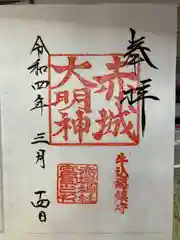 奉拝
赤城
大明神
牛込總鎮守
令和四年三月十四日